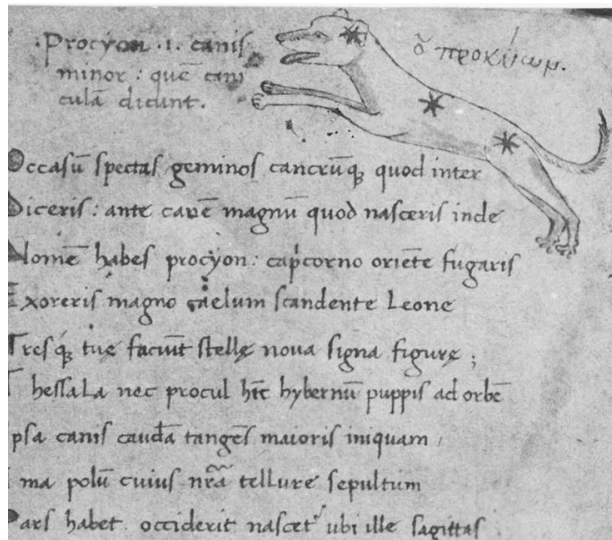 ·Procyon ·i· canis
minor : quē cani
culā dicunt.
ὁ προκύων.
Occasū spectas geminos cancrūq; quod inter
Diceris : ante canē magnū quod nasceris inde
Nomē habes procyon : cap̄corno oriēte fugaris
Exoreris magno caelum scandente Leone
Tresq; tuę faciūt stellę nova signa figurę ;
Thessala nec procul hīc hybernū puppis ad orbē
psa canis caudā tangēs maioris iniquam
ma polū cuius nr̄a tellure sepultum
Pars habet. occiderit nascet ubi ille sagittas